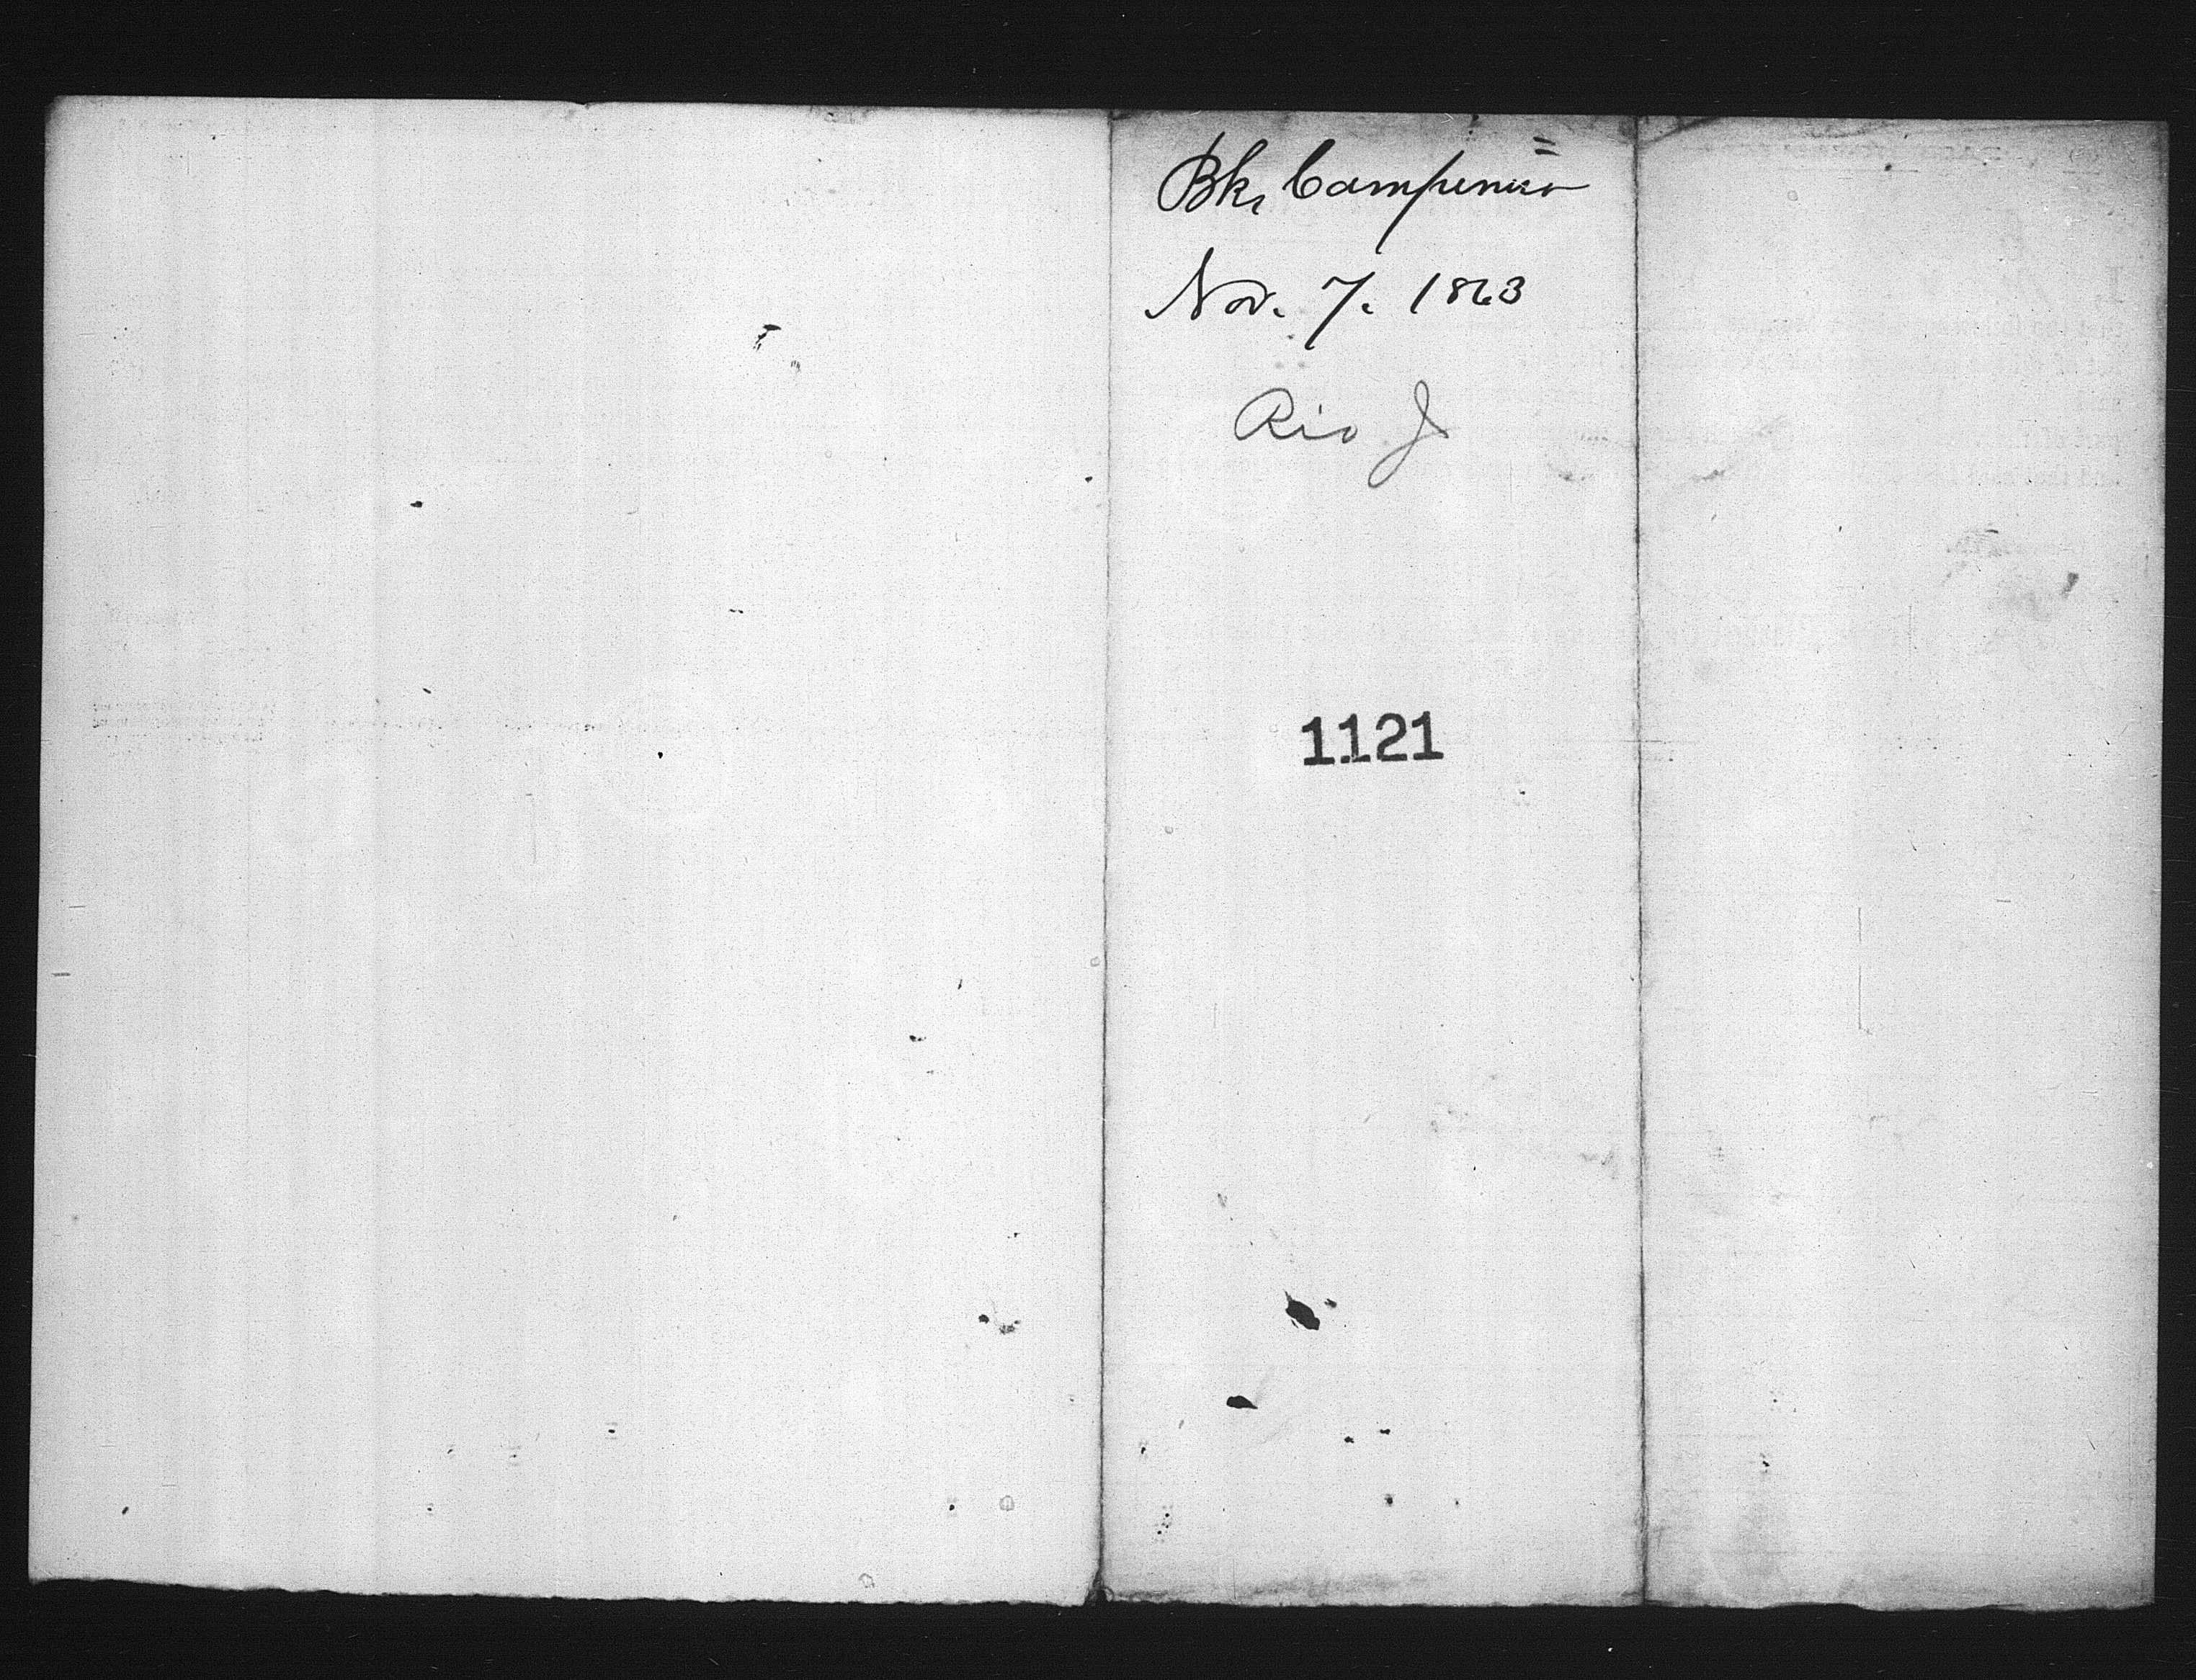 Bk. Campinero
Nov. 7. 1863
Rio J
1121